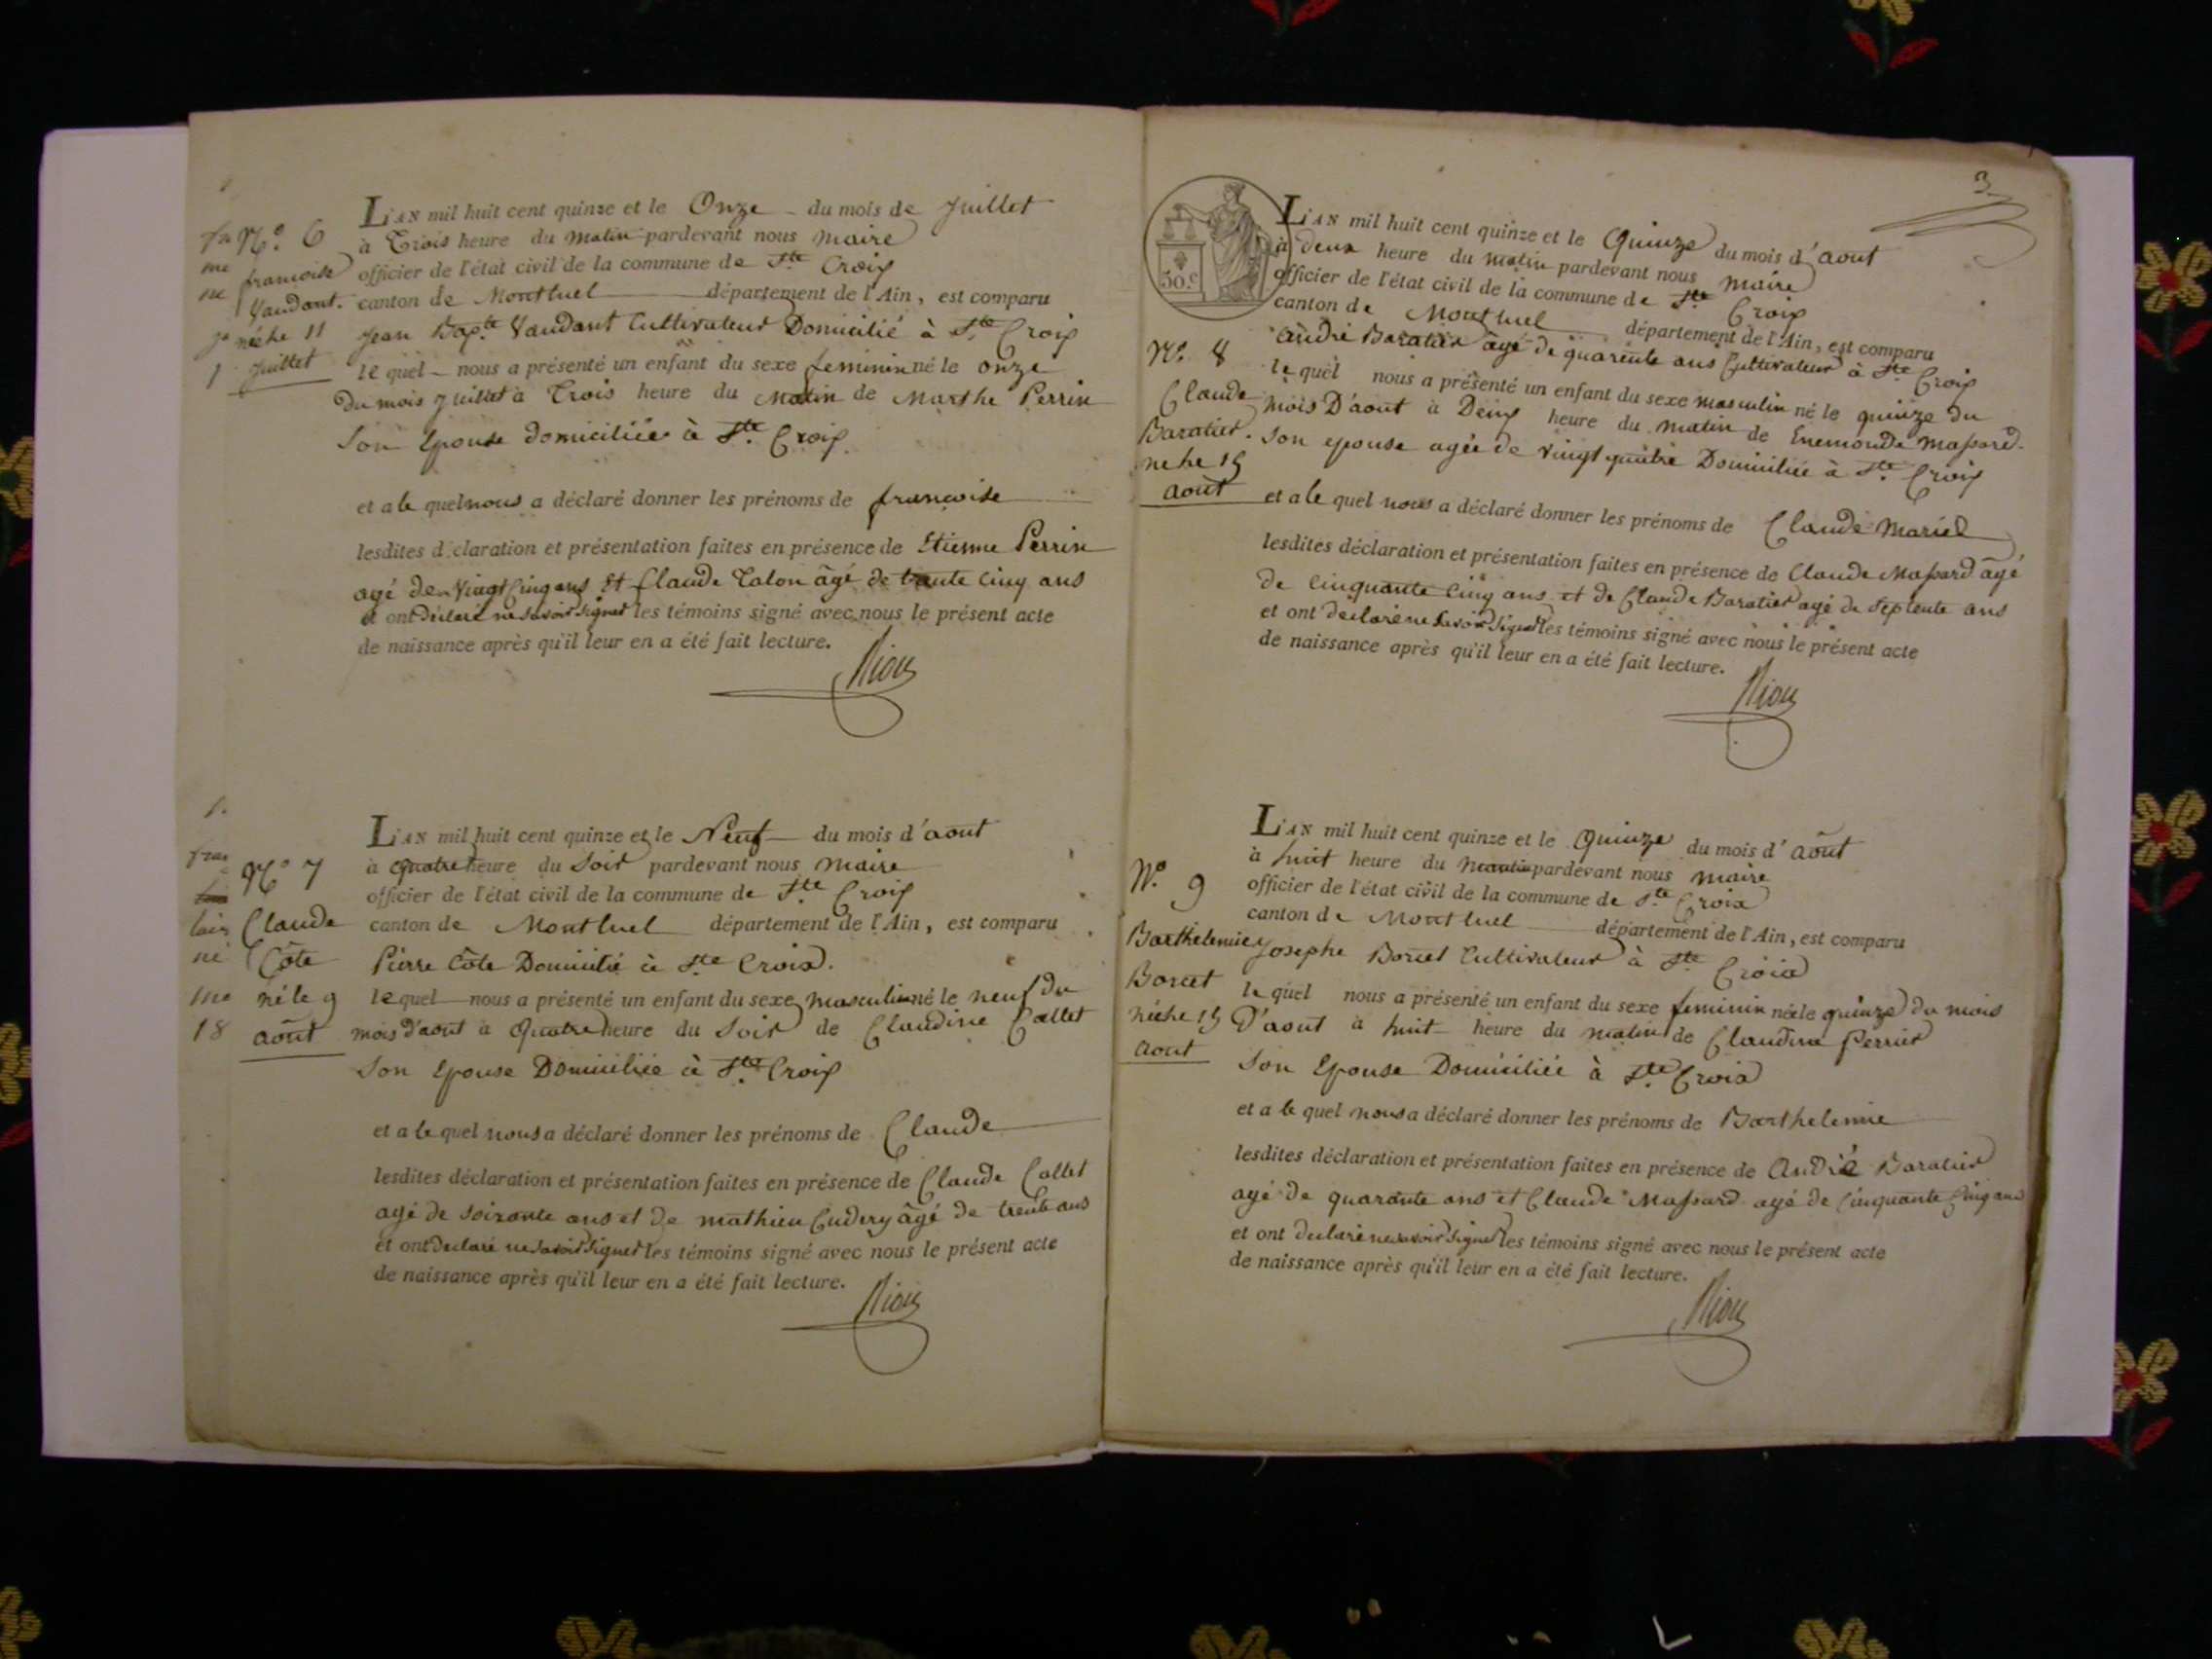 N.o 6
francoise
Vaudant.
néé le 11
juillet
L'AN mil huit cent quinze et le Onze du mois de juillet
à Trois heure du Matin pardevant nous Maire
officier de l'état civil de la commune de Ste Croix
canton de Montluel département de l'Ain, est comparu
Jean Bapte Vaudant Cultivateur Domicilié à Ste Croix
le quel nous a présenté un enfant du sexe feminin né le onze
Du mois juillet à Trois heure du Matin de Marthe Perrin
Son Epouse domiciliée à Ste Croix.
et a le quel nous a déclaré donner les prénoms de francoise
lesdites déclaration et présentation faites en présence de Etienne Perrin
agé de Vingt Cinq ans Et Claude Talon âgé de trante cinq ans
et ont Déclaré ne Savoir Signer les témoins signé avec nous le présent acte
de naissance après qu'il leur en a été fait lecture.
Riou
N.o 7
Claude
Côte
né le 9
août
L'AN mil huit cent quinze et le Neuf du mois d'août
à Quatre heure du Soir pardevant nous Maire
officier de l'état civil de la commune de Ste Croix
canton de Montluel département de l'Ain, est comparu
Pierre Côte Domicilié à Ste Croix.
le quel nous a présenté un enfant du sexe masculin né le neuf du
mois d'août à Quatre heure du Soir de Claudine Collet
Son Epouse Domiciliée à Ste Croix
et a le quel nous a déclaré donner les prénoms de Claude
lesdites déclaration et présentation faites en présence de Claude Collet
agé de Soixante ans et de mathieu Cudery âgé de trente ans
et ont declaré ne Savoir Signer les témoins signé avec nous le présent acte
de naissance après qu'il leur en a été fait lecture.
Riou
3
50.c
N.o 8
Claude
Baratier.
ne le 15
août
L'AN mil huit cent quinze et le Quinze du mois d'aout
à deux heure du matin pardevant nous Maire
officier de l'état civil de la commune de Ste Croix
canton de Montluel département de l'Ain, est comparu
andré Baratier âgé de quarente ans Cultivateur à Ste Croix
le quel nous a présenté un enfant du sexe masculin né le quinze du
mois D'aout à Deux heure du matin de Enemonde Massard
Son epouse agée de vingt quatre Domiciliée à Ste Croix
et a le quel nous a déclaré donner les prénoms de Claude Mariel
lesdites déclaration et présentation faites en présence de Claude Massard âgé
de Cinquante Cinq ans et de Claude Baratier agé de Septente ans
et ont declaré ne Savoir Signer les témoins signé avec nous le présent acte
de naissance après qu'il leur en a été fait lecture.
Riou
N.o 9
Barthelemie
Borcet
néé le 15
Aout
L'AN mil huit cent quinze et le Quinze du mois d'Août
à huit heure du Matin pardevant nous Maire
officier de l'état civil de la commune de Ste Croix
canton de Montluel département de l'Ain, est comparu
Josephe Borcet Cultivateur à Ste Croix
le quel nous a présenté un enfant du sexe feminin née le quinze du mois
D'aout à huit heure du matin de Claudine Perrier
Son Epouse Domiciliée à Ste Croix
et a le quel nous a déclaré donner les prénoms de Barthelemie
lesdites déclaration et présentation faites en présence de André Baratier
agé de quarante ans et Claude Massard agé de Cinquante Cinq ans
et ont declaré ne savoir Signer les témoins signé avec nous le présent acte
de naissance après qu'il leur en a été fait lecture.
Riou